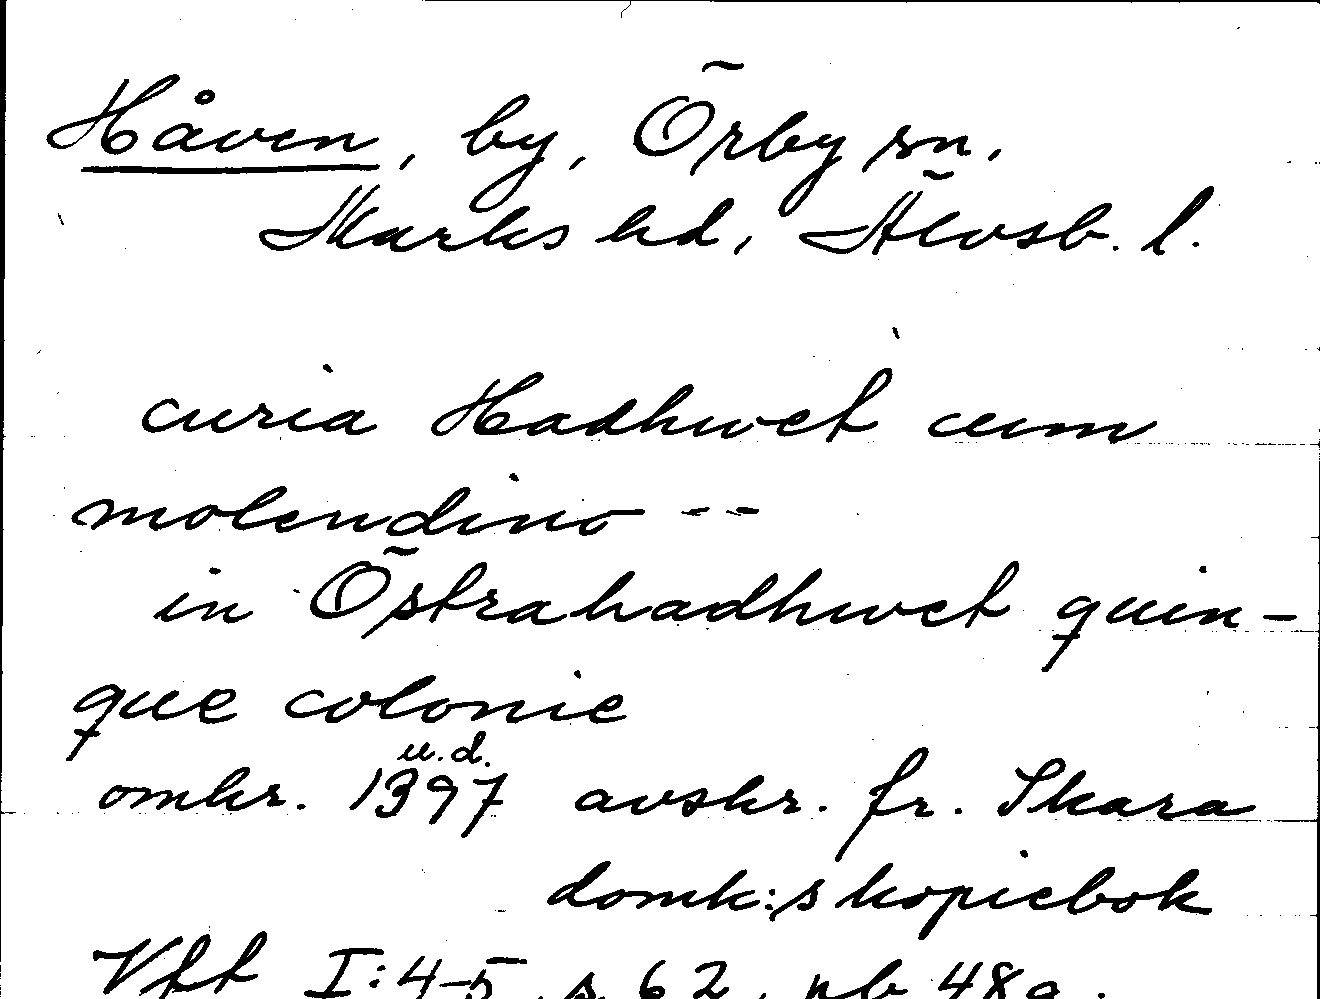 Håven, by, Örby sn.
Marks hd, Älvsb. l.
curia Hadhwet cum
molendino --
in Östrahadhwet quin-
que colonie
u.d.
omkr. 1397 avskr. fr. Skara
domk:s kopiebok
Vft I:4-5, s. 62, nb 489.